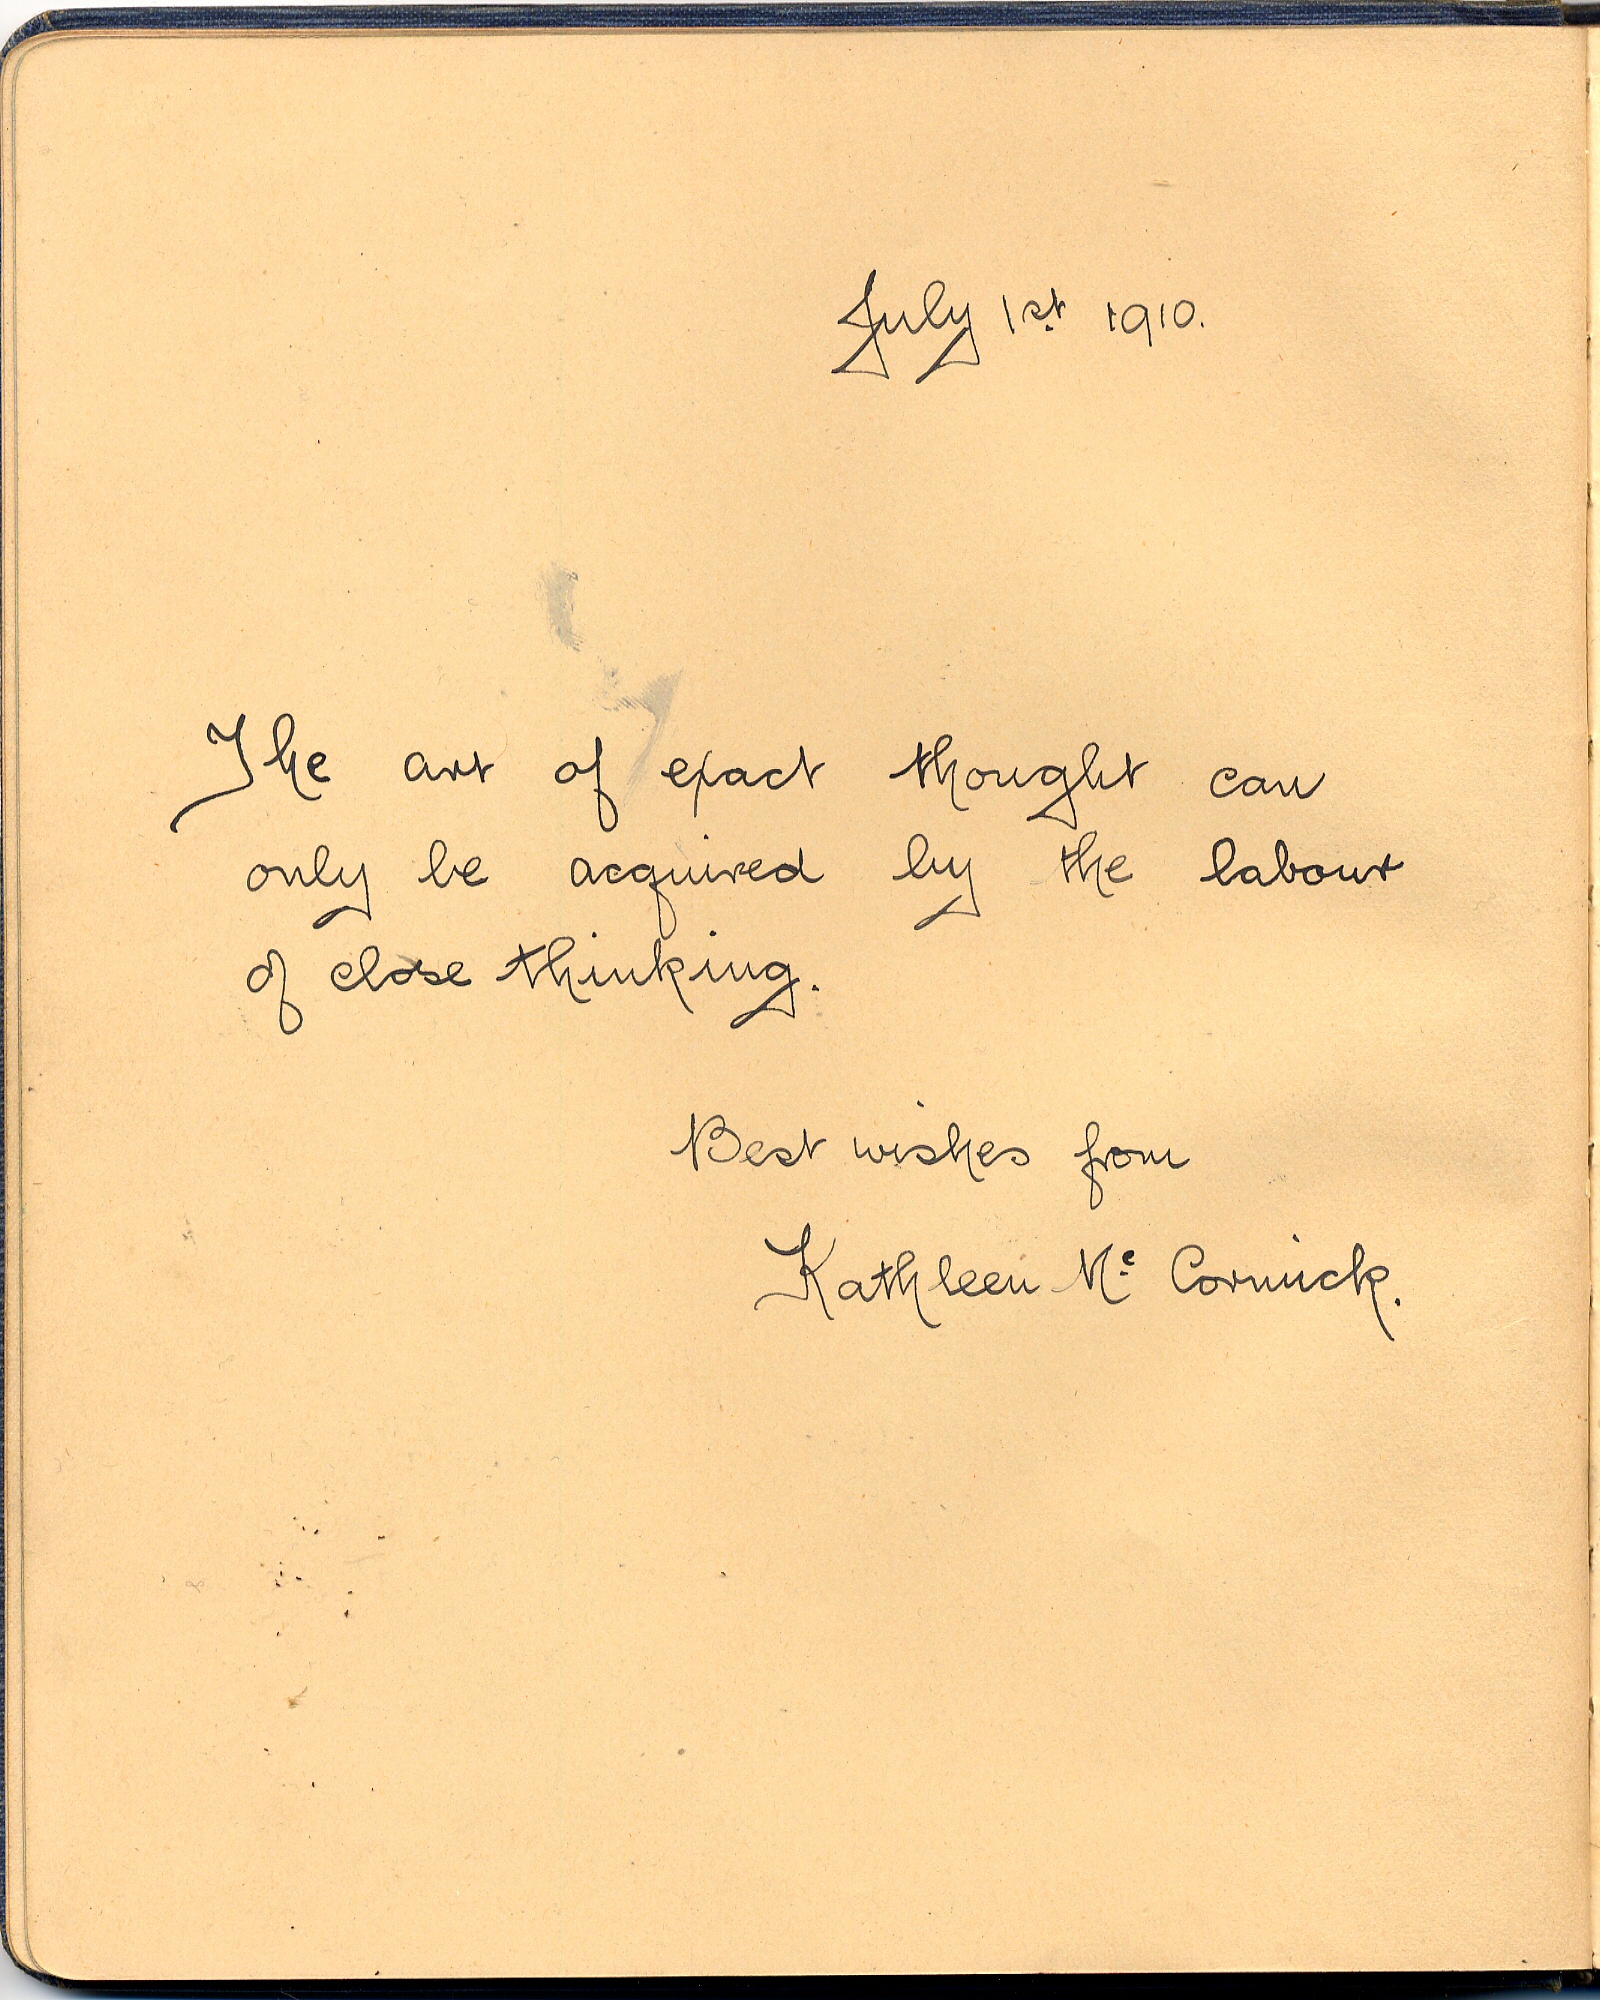 July 1st 1910.
The art of exact thought can
only be acquired by the labour
of close thinking.
Best wishes from
Kathleen Mc Cormick.